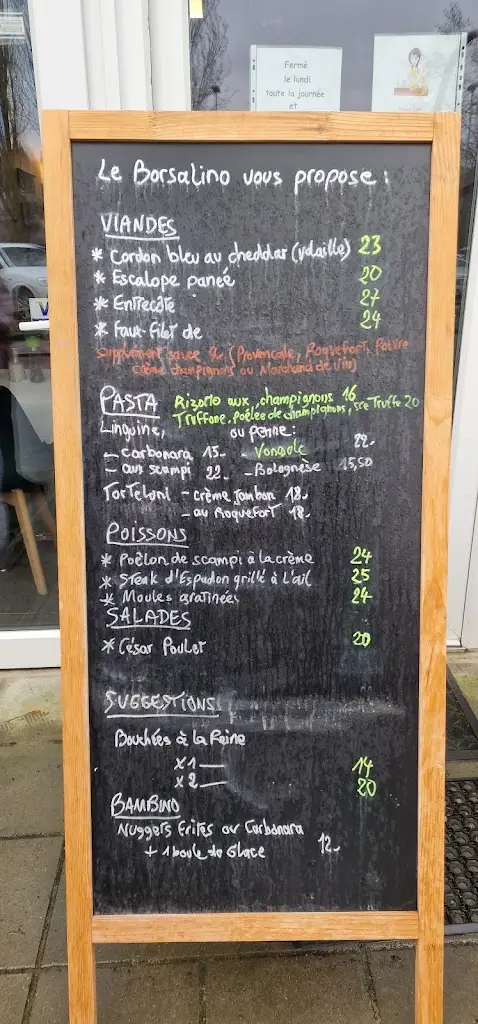 Fermé
le lundi
toute la journée
et
Le Borsalino vous propose :
VIANDES
* Cordon bleu au cheddar (volaille) 23
* Escalope paneé 20
* Entrecôte 27
* Faux-Filet de 24
supplément sauce (Provençale, Roquefort, Poivre
crème champignons ou Marchand de Vin)
PASTA Rizotto aux champignons 16
Truffone, Poêlée de champignons, Truffe 20
Linguine, ou penne :
- carbonara 15.- - Vongole 22.-
- aux scampi 22.- - Bolognèse 15,50
Torteloni - crème Jambon 18.-
- au Roquefort 18.-
POISSONS
* Poêlon de scampi à la crème 24
* Steak d'Espadon grillé à l'ail 25
* Moules gratinées 24
SALADES
* César Poulet 20
SUGGESTIONS
Bouchées à la Reine
x1 14
x2 20
BAMBINO
Nuggets frites ou Carbonara
+ 1 boule de Glace 12.-